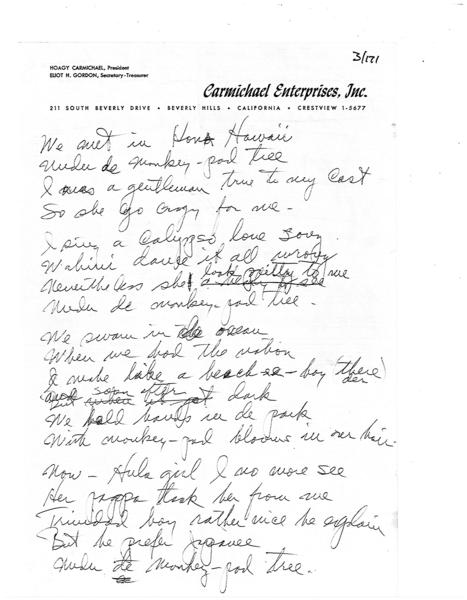 HOAGY CARMICHAEL, President
ELIOT H. GORDON, Secretary-Treasurer
Carmichael Enterprises, Inc.
211 SOUTH BEVERLY DRIVE • BEVERLY HILLS • CALIFORNIA • CRESTVIEW 1-5677
We met in Hawaii
Under de monkey-pod tree
I was a gentleman true to my cast
So she go crazy for me -
I sing a calypso love song
Wahini dance it all wrong
look pretty to me
Nevertheless she
Under de monkey-pod tree.
We swam in de ocean
When we had the notion
I make like a beach-boy there
der
And soon after dark
We hold hands in de park
With monkey-pod blooms in our hair.
Now - Hula girl I no more see
Her pappa took her from me
Trinidad boy rather nice he explain
But he prefer
Under de monkey-pod tree.